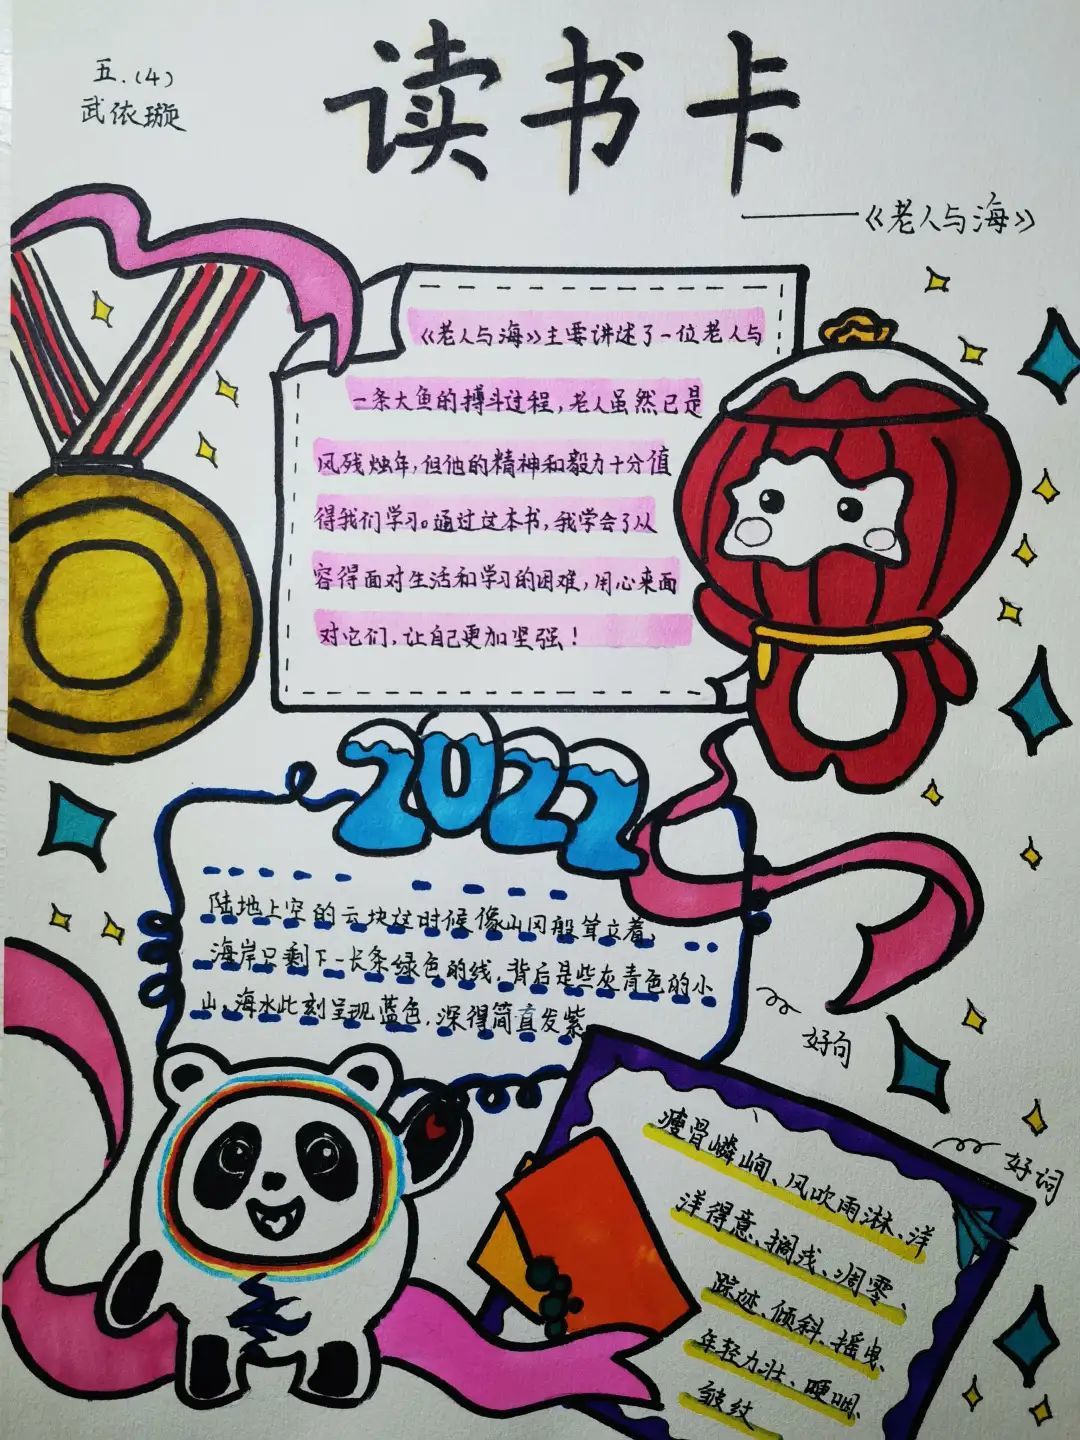 五.(4)
武依璇
读书卡
——《老人与海》
《老人与海》主要讲述了一位老人与
一条大鱼的搏斗过程，老人虽然已是
风残烛年，但他的精神和毅力十分值
得我们学习。通过这本书，我学会了从
容得面对生活和学习的困难，用心来面
对它们，让自己更加坚强！
2022
陆地上空的云块这时候像山冈般耸立着，
海岸只剩下一长条绿色的线，背后是些灰青色的小
山，海水此刻呈现蓝色，深得简直发紫
好句
好词
瘦骨嶙峋、风吹雨淋、洋
洋得意、搁浅、凋零、
踪迹、倾斜、摇曳、
年轻力壮、哽咽、
皱纹